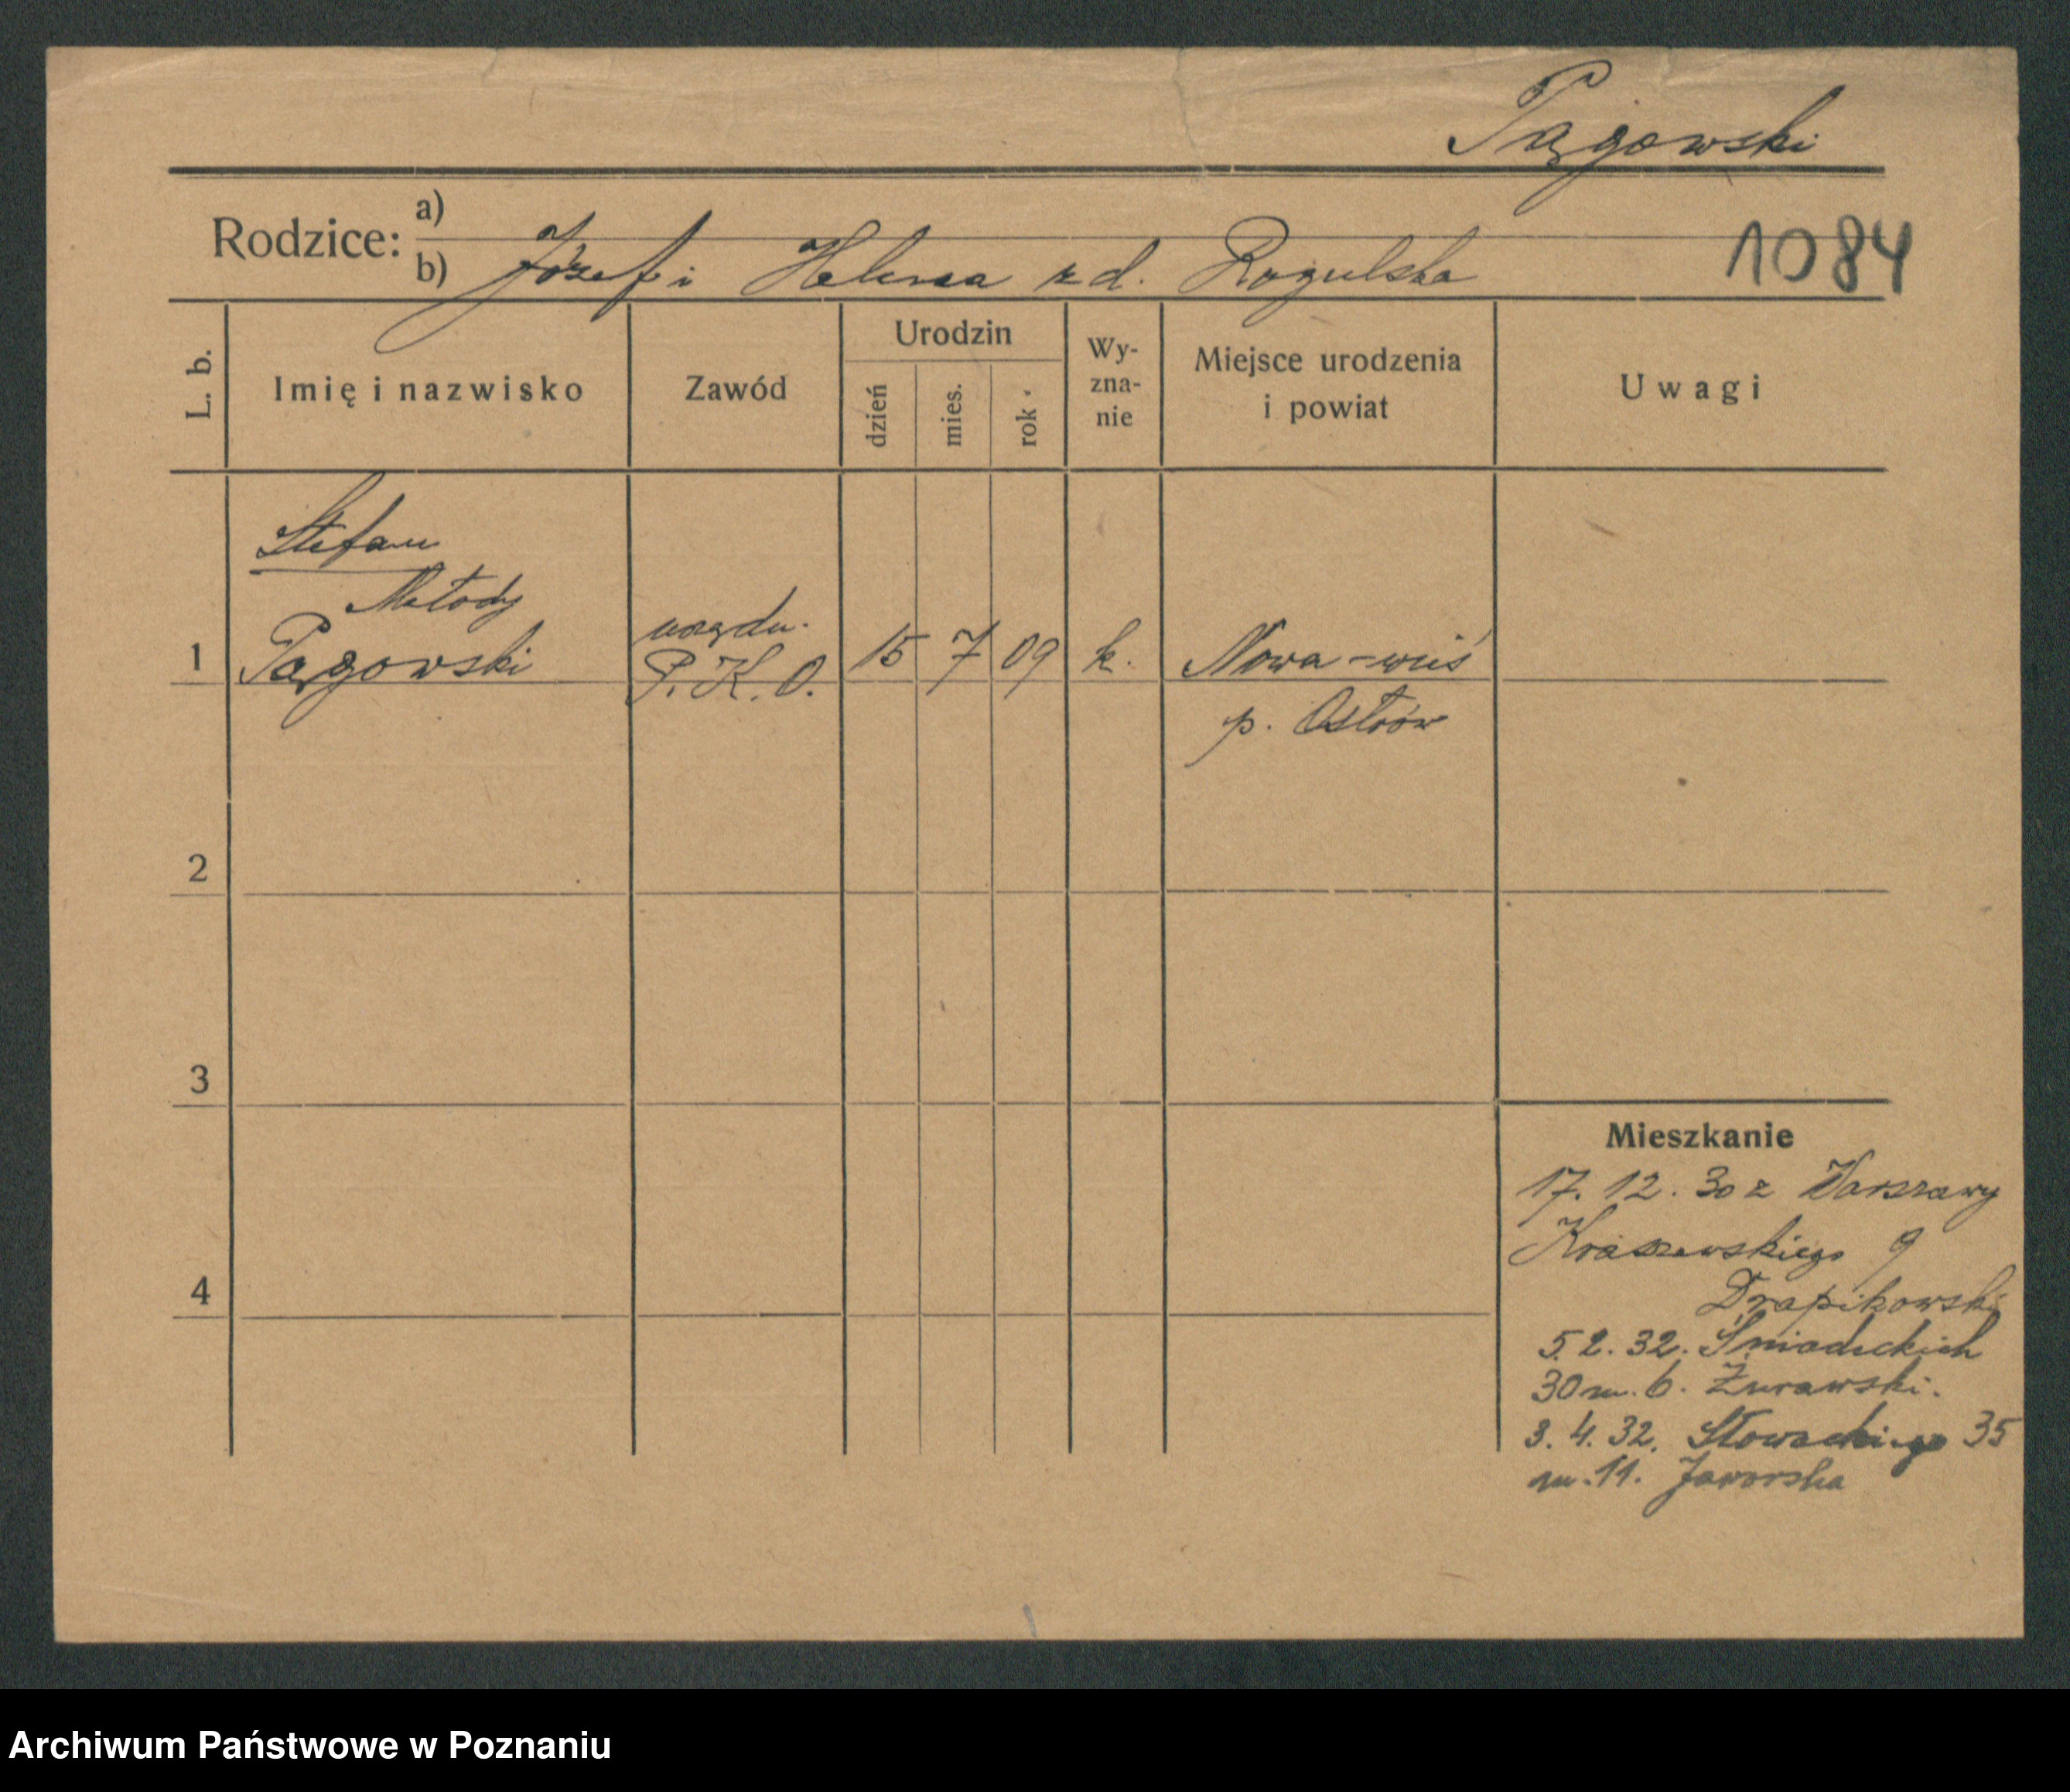 Pągowski
Rodzice:
a)
b) Józef i Helena z d. Rogulska
1084
L. b.
Imię i nazwisko
Zawód
Urodzin
dzień
mies.
rok
Wy-
zna-
nie
Miejsce urodzenia
i powiat
Uwagi
Stefan
Metody
1 Pągowski
urzędn.
P. K. O.
15 7 09 k. Nowa-wieś
p. Ostrów
2
3
4
Mieszkanie
17. 12. 30 z Warszawy
Kraszewskiego 9
Drapikowski
5. 2. 32. Śniadeckich
30 m. 6. Żurawski.
3. 4. 32. Słowackiego 35
m. 11. Jaworska
Archiwum Państwowe w Poznaniu